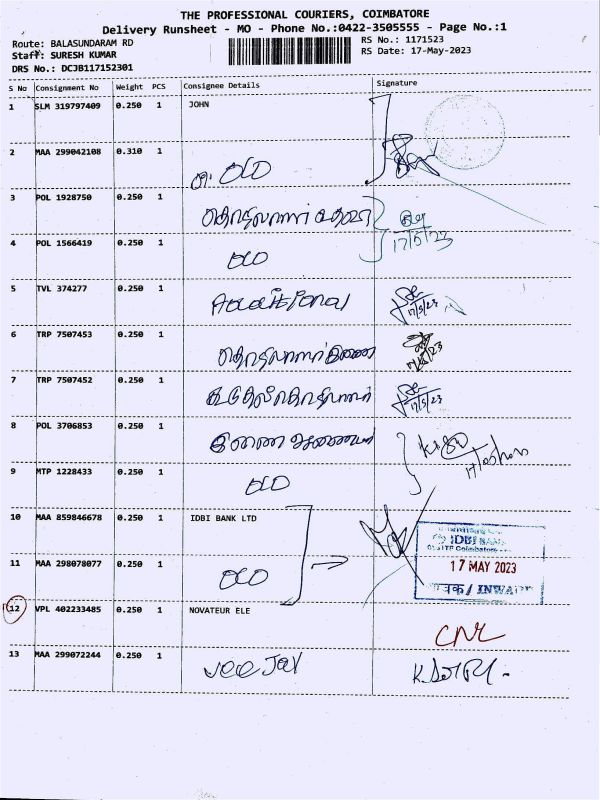 THE PROFESSIONAL COURIERS, COIMBATORE
Delivery Runsheet - MO - Phone No.:0422-3505555 - Page No.:1
Route: BALASUNDARAM RD
RS No.: 1171523
Staff: SURESH KUMAR
RS Date: 17-May-2023
DRS No.: DCJB117152301
S No Consignment No Weight PCS Consignee Details Signature
1 SLM 319797409 0.250 1 JOHN
2 MAA 299042108 0.310 1
3 POL 1928750 0.250 1
17/5/23
4 POL 1566419 0.250 1
5 TVL 374277 0.250 1 Additional
17/5/23
6 TRP 7507453 0.250 1 தொழிலாளர் இணை
17/5/23
7 TRP 7507452 0.250 1 கூடுதல் தொழிலாளர்
17/5/23
8 POL 3706853 0.250 1 இணை ஆணையர்
9 MTP 1228433 0.250 1
10 MAA 859846678 0.250 1 IDBI BANK LTD
IDBI BANK
Coimbatore
11 MAA 298078077 0.250 1
17 MAY 2023
INWARD
12 VPL 402233485 0.250 1 NOVATEUR ELE
13 MAA 299072244 0.250 1 VEE JAY